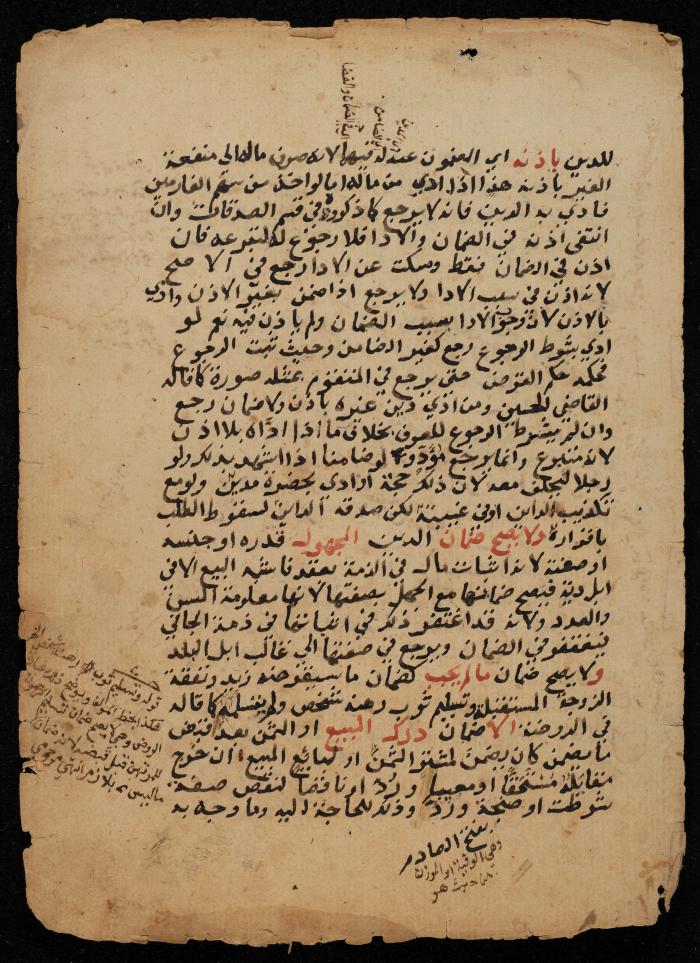 للدين باذنه اي المضمون عنه له فيهما لانه صرف ماله الى منفعة
الغير باذنه هذا اذا ادي من ماله اما لو اخذ من سهم الغارمين
فادي به الدين فانه لا يرجع كما ذكروه في قسم الصدقات وان
انتفى اذنه في الضمان والادا فلا رجوع له لتبرعه فان
اذن في الضمان فقط وسكت عن الادا رجع في الا صح
لانه اذن في سبب الادا ولا يرجع اذا ضمن بغير الاذن وادي
بالاذن لان وجوب الادا بسبب الضمان ولم ياذن فيه نعم لو
ادي بشرط الرجوع رجع كغير الضامن وحيث ثبت الرجوع
فحكمه حكم القرض حتى يرجع في المتقوم بمثله صورة كما قاله
القاضي الحسين ومن ادي دين غيره باذن ولا ضمان رجع
وان لم يشرط الرجوع للعرف بخلاف ما اذا اداه بلا اذن
لانه متبرع وانما يرجع مؤد ولو ضامنا اذا اشهد بذلك ولو
رجلا ليحلف معه لان ذلك حجة او ادي بحضرة مدين ولو مع
تكذيب الداين او في غيبته لكن صدقه الداين لسقوط الطلب
باقراره ولا يصح ضمان الدين المجهول قدره او جنسه
او صفته لانه اثبات مال في الذمة بعقد فاشبه البيع الا في
ابل دية فيصح ضمانها مع الجهل بصفتها لانها معلومة السن
والعدد ولانه قد اغتفر ذلك في اثباتها في ذمة الجاني
فيغتفر في الضمان ويرجع في صفتها الى غالب ابل البلد
ولا يصح ضمان ما لم يجب كضمان ما سيقرضه زيد ونفقة
الزوجة المستقبلة وتسليم ثوب رهنه شخص ولم يتسلمه كما قاله
في الروضة الا ضمان درك المبيع او الثمن بعد قبض
ما يضمن كان يضمن لمشتر الثمن او لبائع المبيع ان خرج
مقابله مستحقا او معيبا ورد او ناقصا لنقص صفة
شرطت او صنجة ورد وذلك للحاجة اليه وما وجه به
بفتح الصاد
وهي الوقية او الموزن
حيث هو
قوله وتسليم ثوب